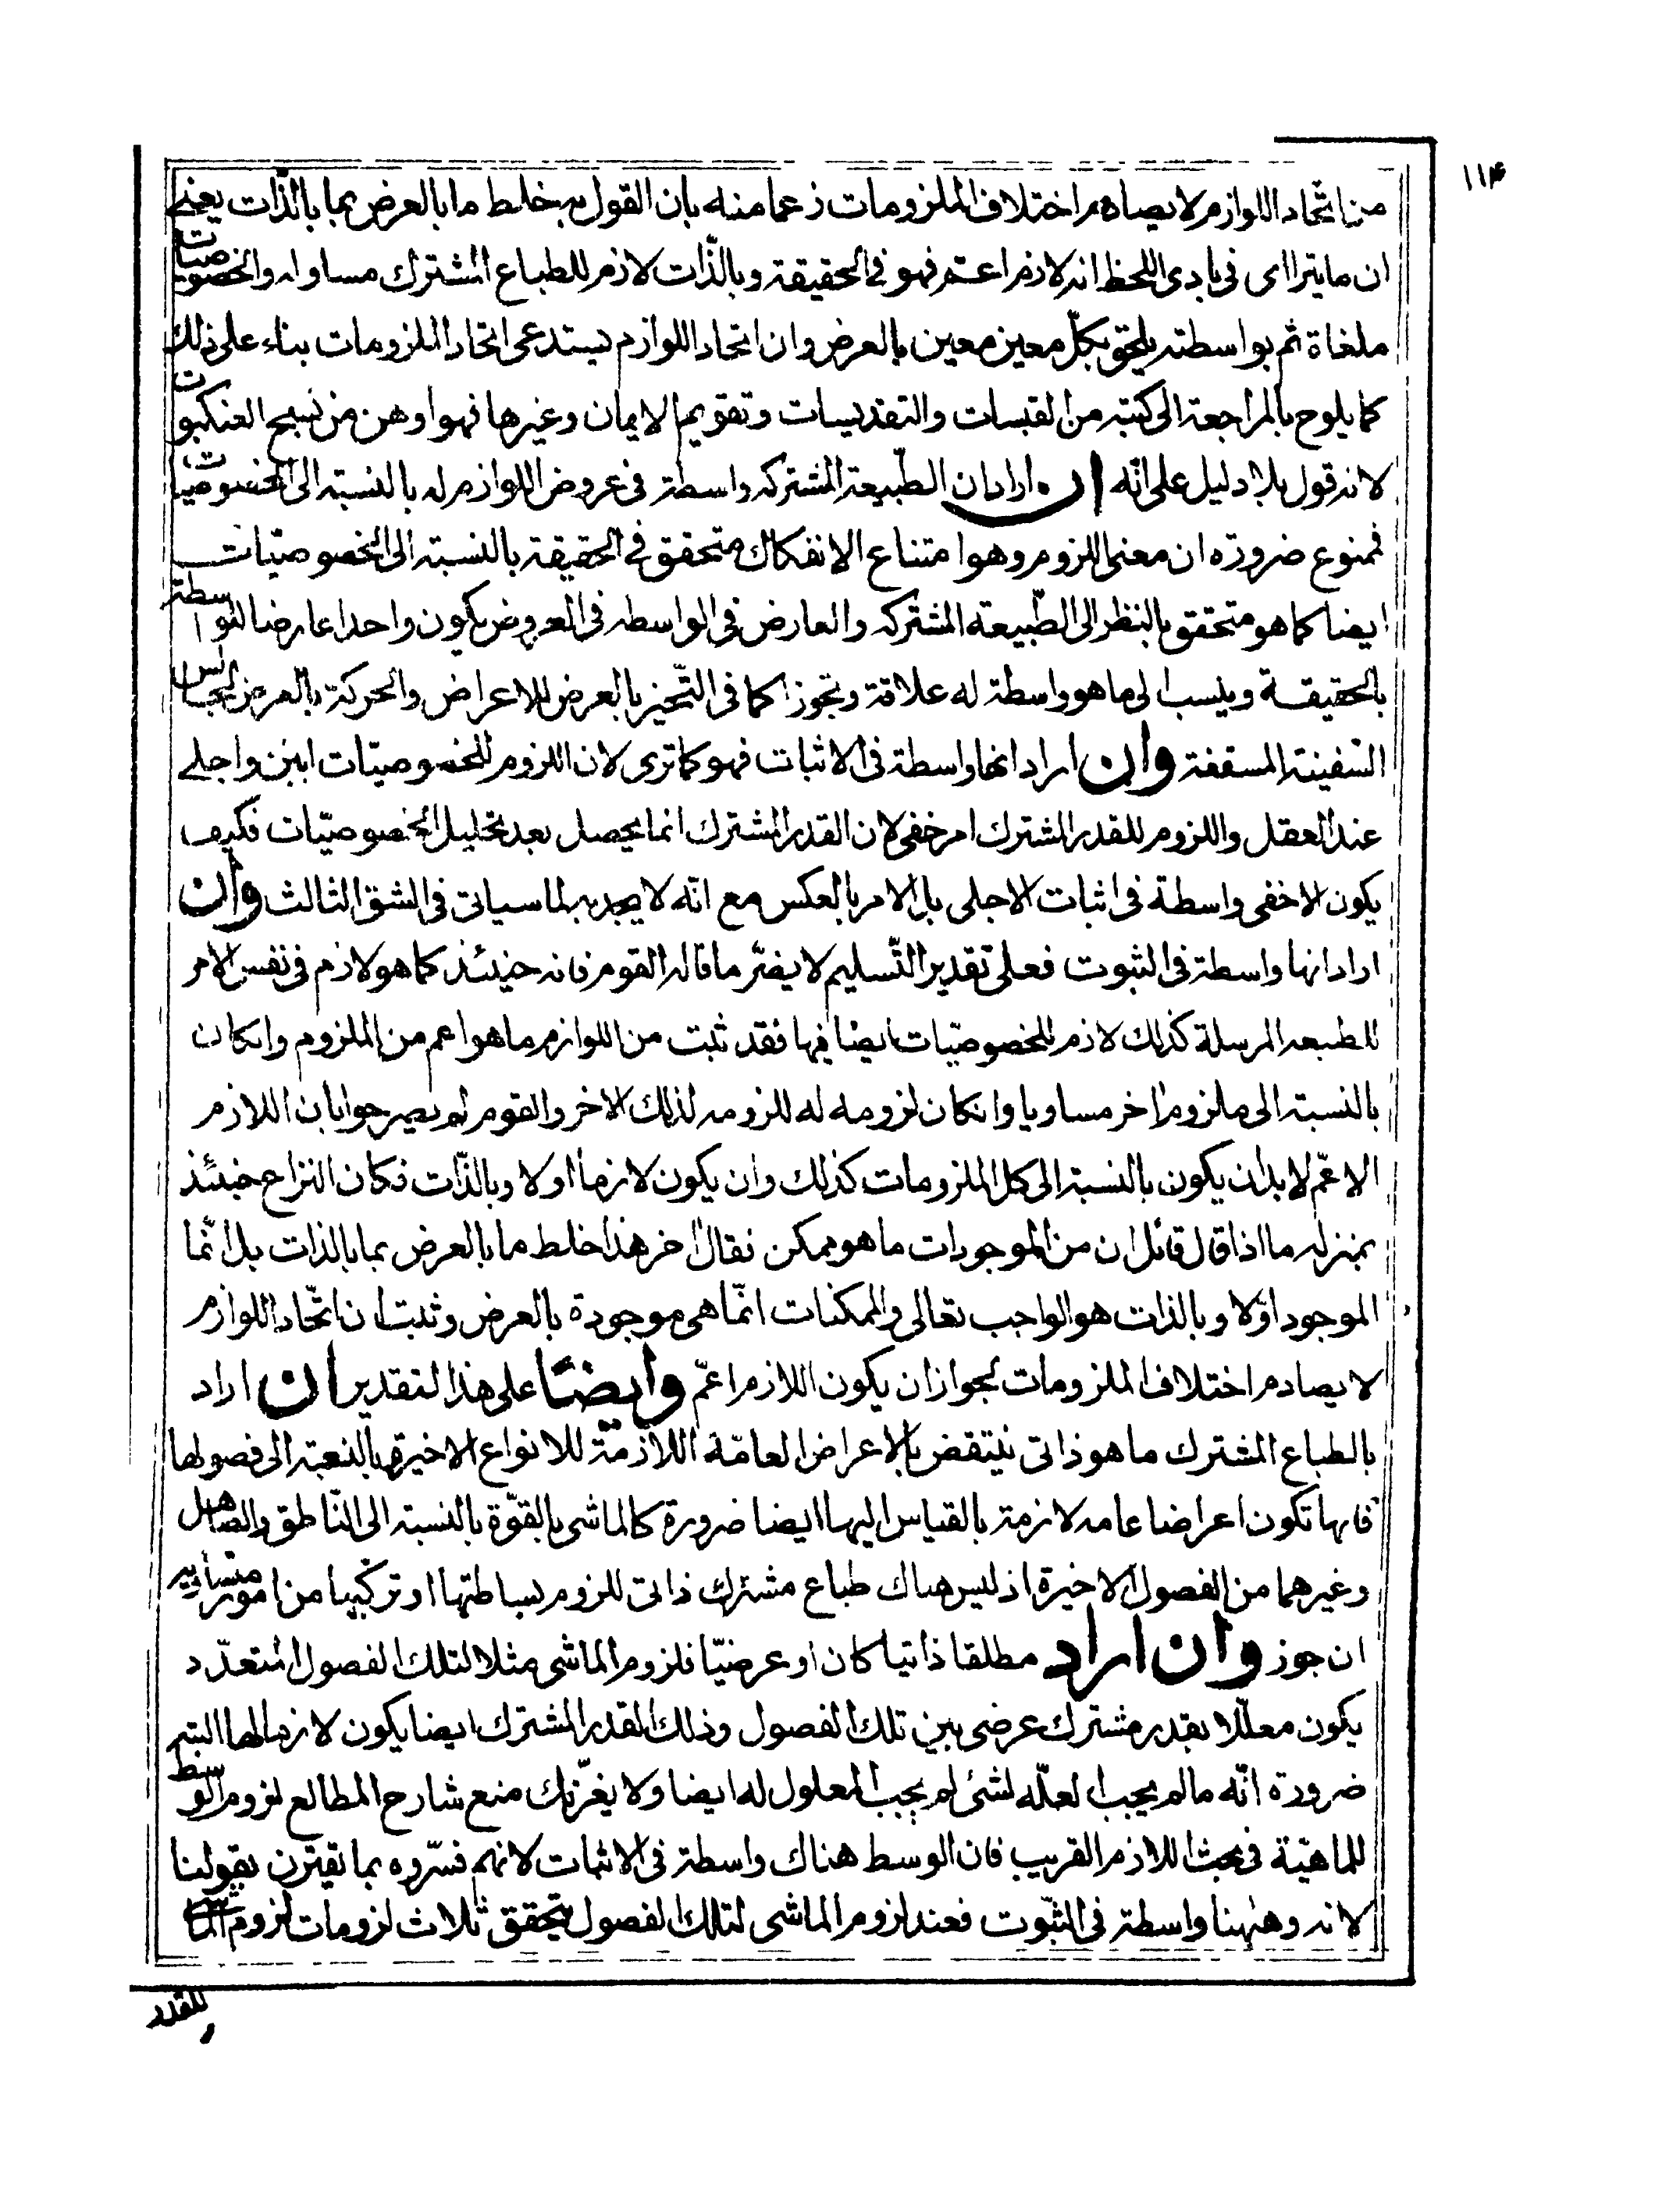 ١١٤
من اتحاد اللوازم لا يصادم اختلاف الملزومات زعما منه بان القول به خلط ما بالعرض بما بالذّات يعنى
ان ما يترااى فى بادى اللحظ انه لازم اعم فهو فى الحقيقة وبالذّات لازم للطباع المشترك مساو له والخصوصيات
ملغاة ثم بواسطته يلحق بكلّ معين معين بالعرض وان اتحاد اللوازم يستدعى اتحاد الملزومات بناء على ذلك
كما يلوح بالمراجعة الى كتبه من القبسات والتقديسات وتقويم الايمان وغيرها فهو اوهن من نسج العنكبوت
لانه قول بلا دليل على انّه ان اراد ان الطّبيعة المشتركه واسطة فى عروض اللوازم له بالنسبة الى الخصوصيات
فممنوع ضرورة ان معنى اللزوم وهو امتناع الانفكاك متحقق فى الحقيقة بالنسبة الى الخصوصيّات
ايضا كما هو متحقق بالنظر الى الطّبيعة المشتركه والعارض فى الواسطه فى العروض يكون واحدا عارضا للواسطة
بالحقيقة وينسب الى ما هو واسطة له علاقة وتجوزا كما فى التّحيز بالعرض للاعراض والحركة بالعرض لجالس
السّفينة المسقفة وان اراد انها واسطة فى الاثبات فهو كما ترى لان اللزوم للخصوصيّات ابين واجلى
عند العقل واللزوم للقدر المشترك امر خفى لان القدر المشترك انما يحصل بعد تحليل الخصوصيّات فكيف
يكون الاخفى واسطة فى اثبات الاجلى بل الامر بالعكس مع انّه لا يجديه لما سياتى فى الشق الثالث وان
اراد انها واسطة فى الثبوت فعلى تقدير التّسليم لا يضرّ ما قاله القوم فانه حينئذ كما هو لازم فى نفس الامر
للطبيعة المرسلة كذلك لازم للخصوصيّات ايضا فيها فقد ثبت من اللوازم ما هو اعم من الملزوم وانكان
بالنسبة الى ملزوم اخر مساويا وانكان لزومه له للزومه لذلك الاخر والقوم لم يصرحوا بان اللازم
الاعمّ لا بد ان يكون بالنسبة الى كل الملزومات كذلك وان يكون لازما اولا وبالذّات فكان النزاع حينئذ
بمنزلة ما اذا قال قائل ان من الموجودات ما هو ممكن فقال اخر هذا خلط ما بالعرض بما بالذات بل انّما
الموجود اوّلا وبالذات هو الواجب تعالى والممكنات انّما هى موجودة بالعرض وثبت ان اتّحاد اللوازم
لا يصادم اختلاف الملزومات لجواز ان يكون اللازم اعمّ وايضًا على هذا التقدير ان اراد
بالطباع المشترك ما هو ذاتى ينتقض بالاعراض العامّة اللازمة للانواع الاخيرة بالنسبة الى فصولها
فانها تكون اعراضا عامه لازمة بالقياس اليها ايضا ضرورة كالماشى بالقوّة بالنسبة الى النّاطق والصاهل
وغيرهما من الفصول الاخيرة اذ ليس هناك طباع مشترك ذاتى للزوم بساطتها او تركيبها من امور متساوية
ان جوز وان اراد مطلقا ذاتيا كان او عرضيّا فلزوم الماشى مثلا لتلك الفصول المتعدّد
يكون معلّلا بقدر مشترك عرضى بين تلك الفصول وذلك القدر المشترك ايضا يكون لازما لها البتة
ضرورة انّه ما لم يجب العلّه لشئ لم يجب المعلول له ايضا ولا يغرّنك منع شارح المطالع لزوم الوسط
للماهيّة فى بحث اللازم القريب فان الوسط هناك واسطة فى الاثبات لانهم فسّروه بما تقترن بقولنا
لانه وههنا واسطة فى الثّبوت فعند لزوم الماشى لتلك الفصول يتحقق ثلاث لزومات لزوم الماشى
للقدر